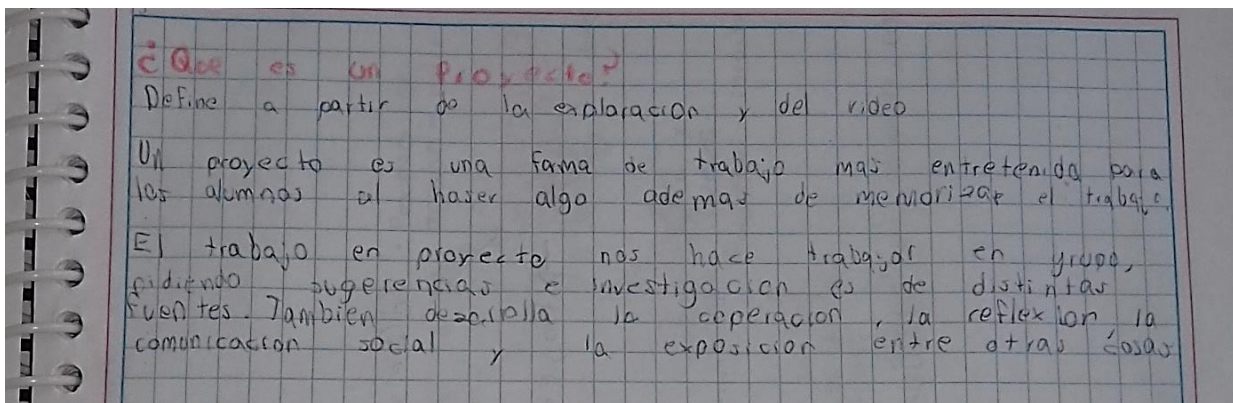 ¿Que es un Proyecto?
Define a partir de la exploracion y del video
Un proyecto es una forma de trabajo mas entretenida para
los alumnos al haser algo ademas de memorizar el trabajo
El trabajo en proyecto nos hace trabajar en grupo,
pidiendo sugerencias e investigacion es de distintas
fuentes. Tambien desarrolla la coperacion, la reflexion, la
comunicacion social y la exposicion entre otras cosas